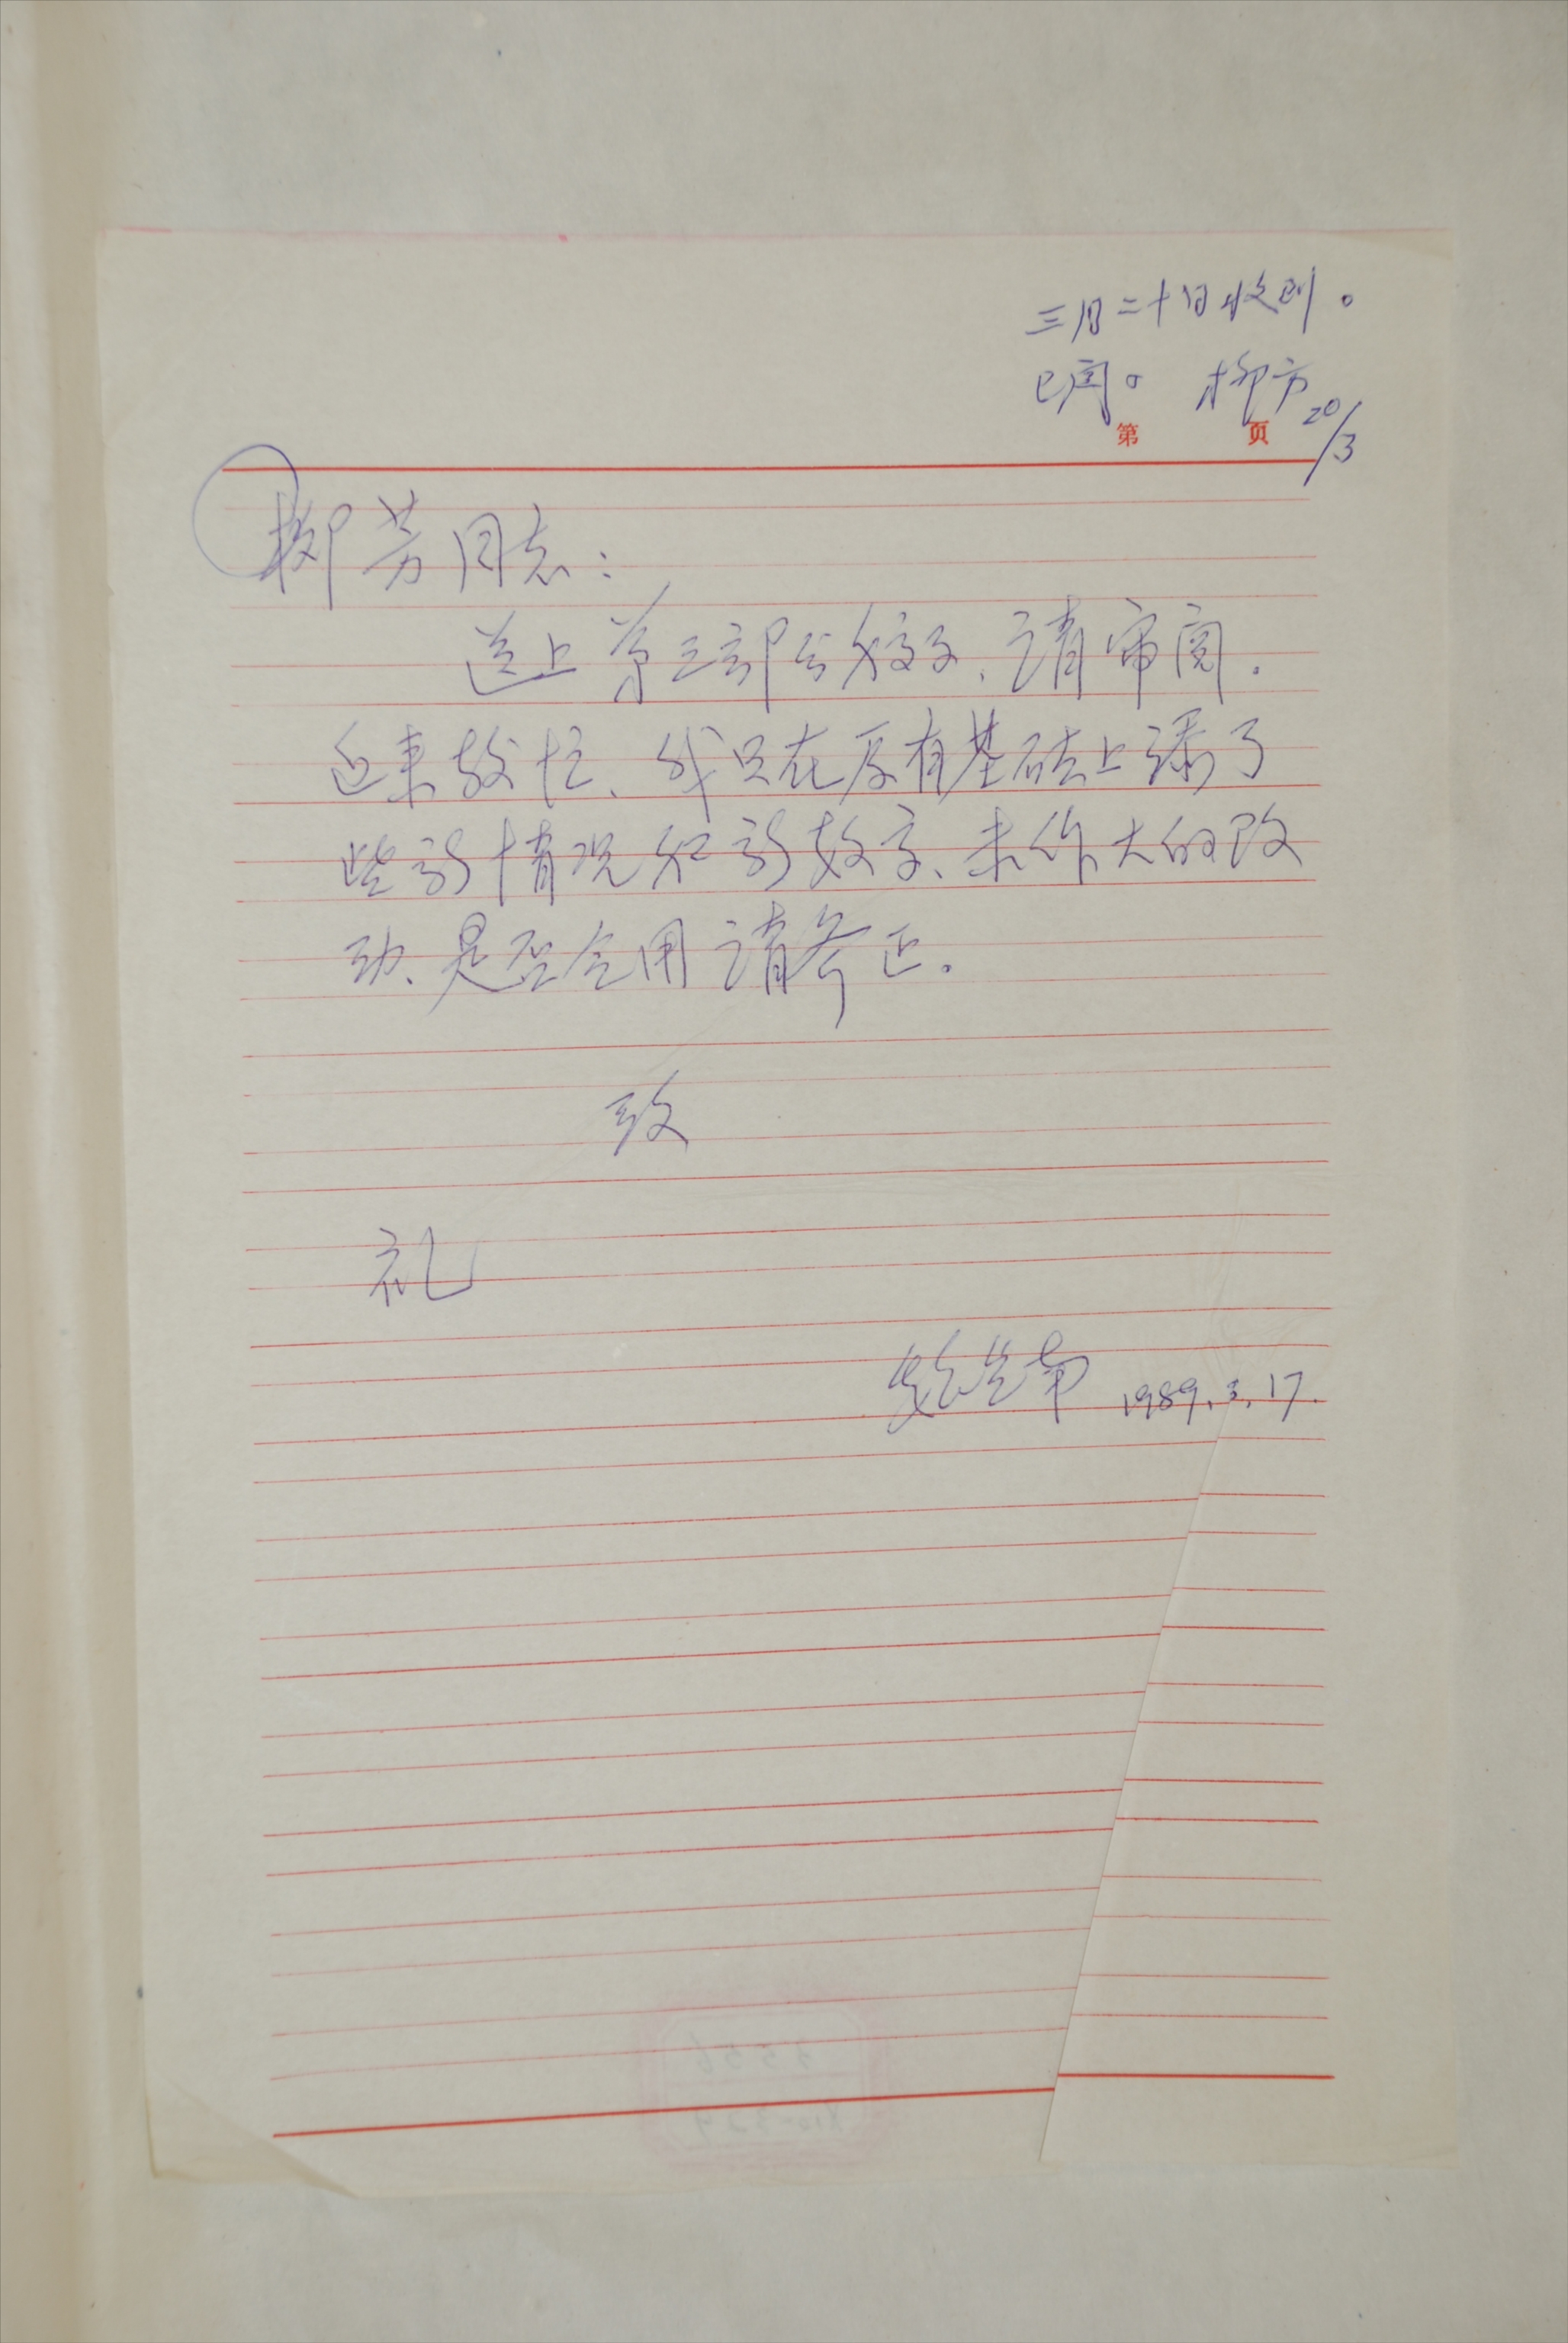 三月二十日收到。
已阅。 柳方 20/3
第 页
柳芳同志：
送上第三部分校文、请审阅.
近来较忙、我只在原有基础上添了
些新情况和新数字、未作大的改
动、是否合用请斧正.
致
礼
1989.3.17.